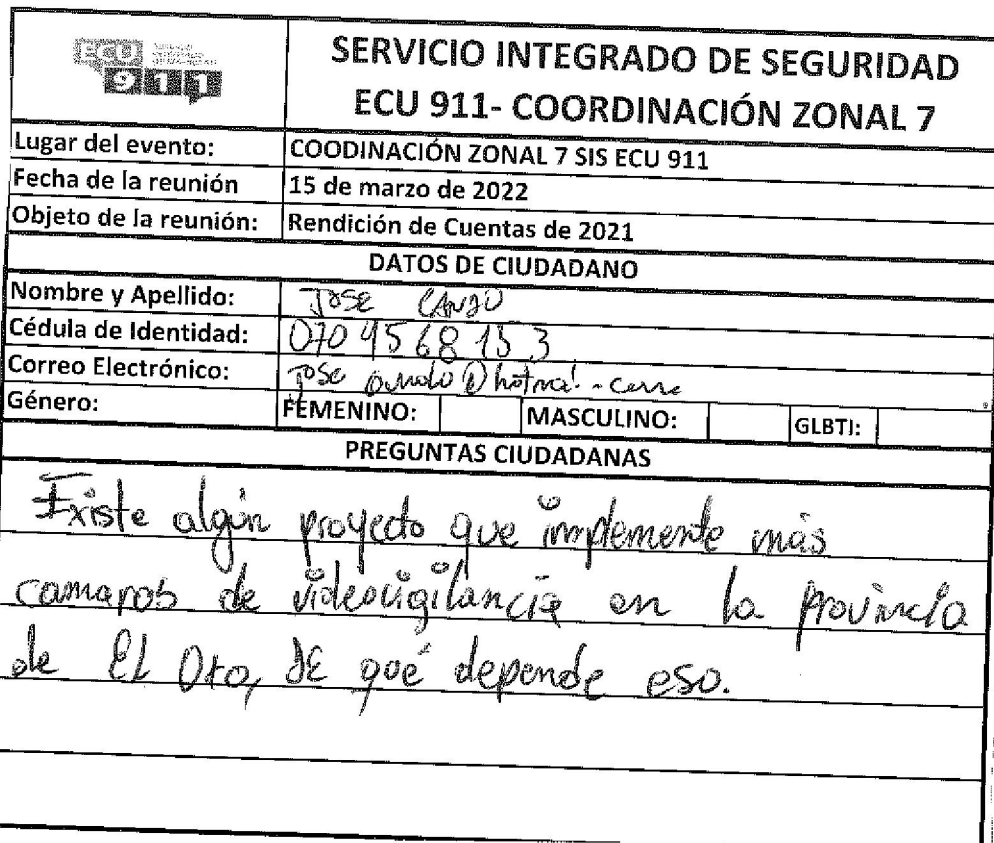 ECU 911
SERVICIO INTEGRADO DE SEGURIDAD
ECU 911- COORDINACIÓN ZONAL 7
Lugar del evento: COODINACIÓN ZONAL 7 SIS ECU 911
Fecha de la reunión 15 de marzo de 2022
Objeto de la reunión: Rendición de Cuentas de 2021
DATOS DE CIUDADANO
Nombre y Apellido: JOSE
Cédula de Identidad: 0704568153
Correo Electrónico: JOSE
Género: FEMENINO: MASCULINO: GLBTI:
PREGUNTAS CIUDADANAS
Existe algún proyecto que implemente más
camaras de videovigilancia en la provincia
de El Oro, DE qué depende eso.